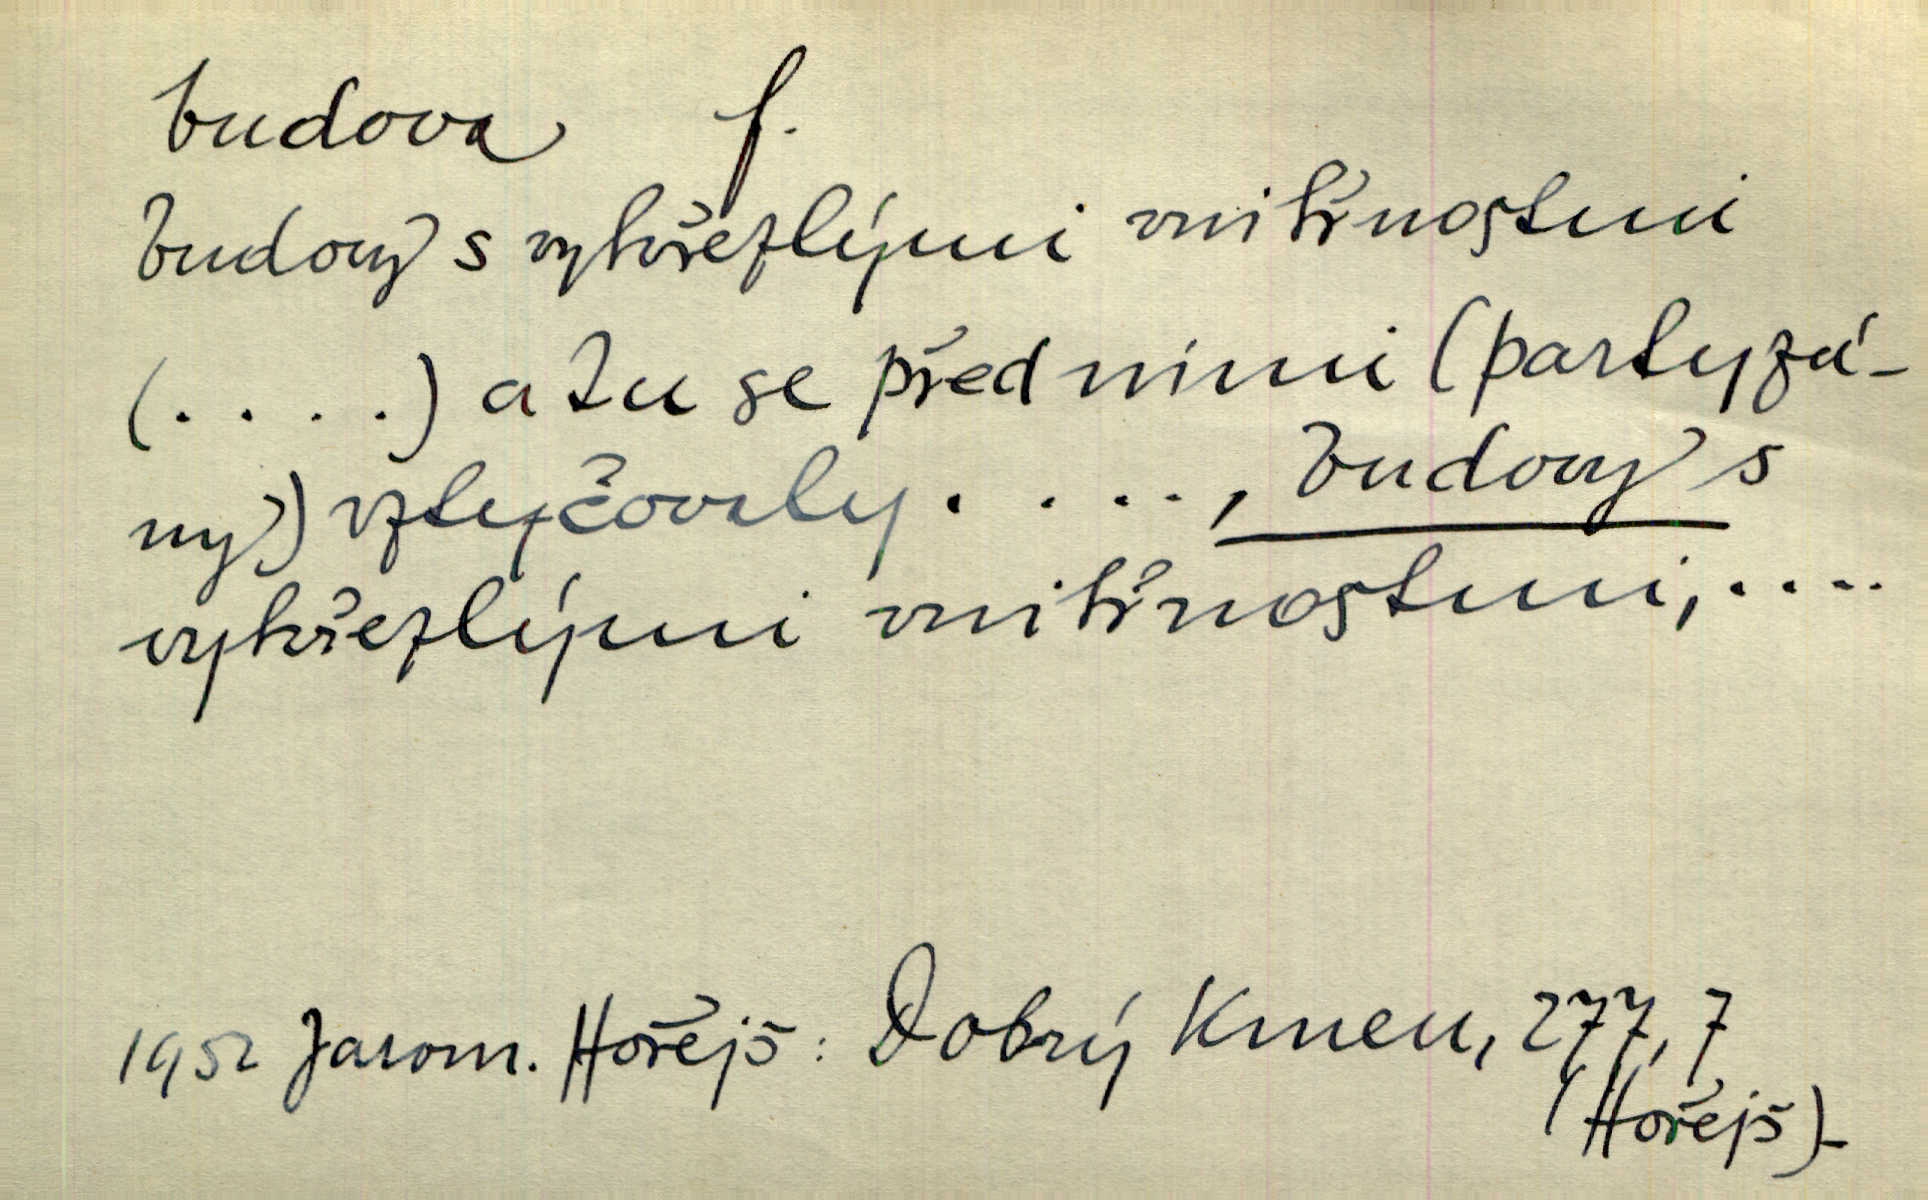 budova f.
budovy s vykřeslými vnitřnostmi
(. . . .) a tu se před nimi (partyzá-
ny) vztyčovaly . . . ., budovy s
vykřeslými vnitřnostmi, . . . .
1952 Jarom. Hořejš: Dobrý Kmen, 277, 7
(Hořejš)